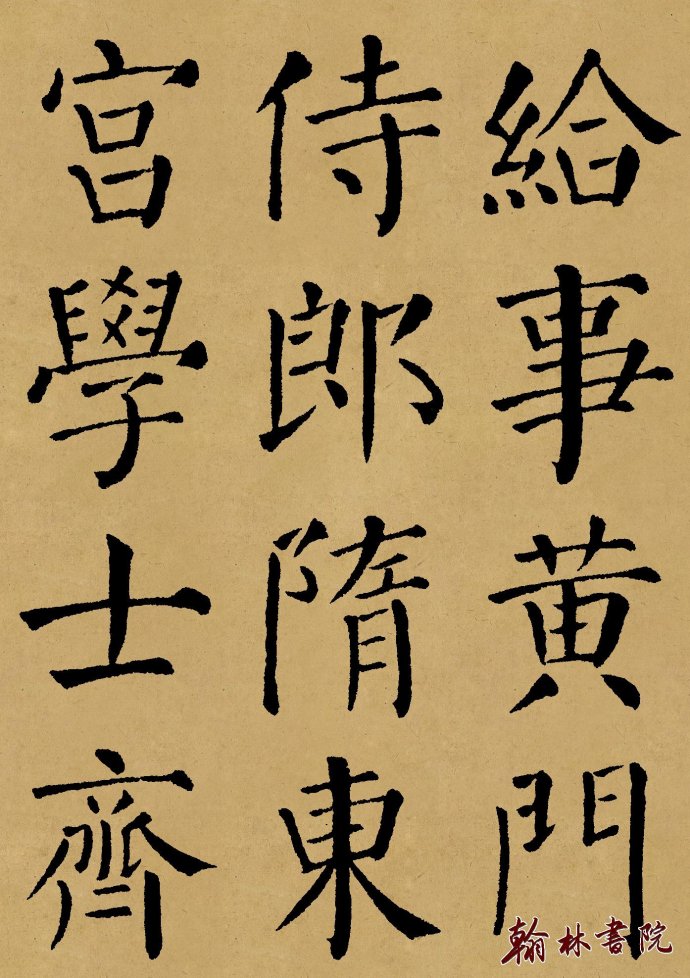 給事黃門
侍郎隋東
宮學士齊
翰林書院